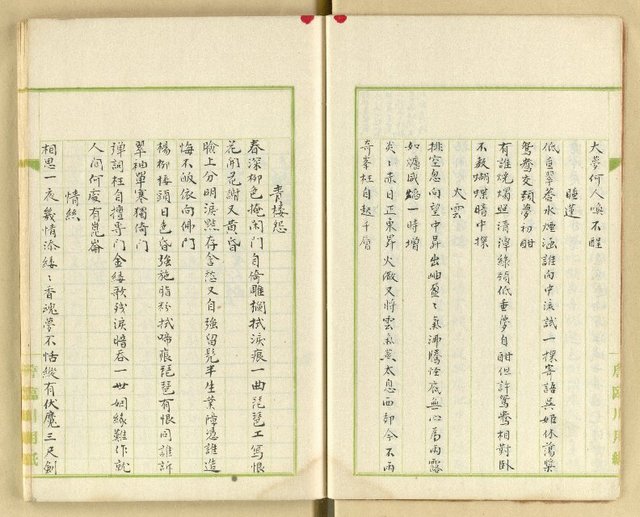 大夢何人喚不醒
睡蓮
低垂翠蓋水煙涵誰向中流試一探寄語吳姬休蕩槳
鴛鴦交頸夢初酣
有誰燒燭照清潭綠頸低垂夢自酣但許鴛鴦相對臥
不教蝴蝶暗中探
火雲
排空忽向望中昇出岫 氣沸騰怪底無心為雨露
如爐威 一時增
炎炎赤日正東昇火 又將雲氣蒸太息西郊今不雨
奇峯枉自起千層
青樓怨
春深柳色掩閑門自倚雕欄拭淚痕一曲琵琶工寫恨
花開花謝又黃昏
臉上分明淚點存含愁又自強留髠半生業障憑誰造
悔不皈依向佛門
楊柳樓頭日色昏強施脂粉拭啼痕琵琶有恨同誰訴
翠袖單寒獨倚門
彈詞枉自擅專門金縷歌殘淚暗吞一世姻緣難作就
人間何處有崑崙
情絲
相思一夜幾情添縷縷香魂夢不恬縱有伏魔三尺劍